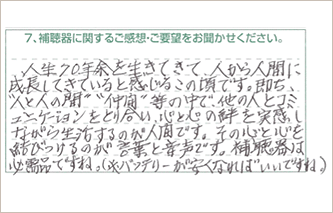 7、補聴器に関するご感想・ご要望をお聞かせください。
人生70年余を生きてきて、人から人間に
成長してきていると感じるこの頃です。即ち、
"人と人の間" "仲間" 等の中で、他の人とコミ
ュニケーションをとり合い、心と心の絆を実感し
ながら生活するのが人間です。その心と心を
結びつけるのが言葉と音声です。補聴器は
必需品ですね。(水バッテリーが安くなればいいですね)